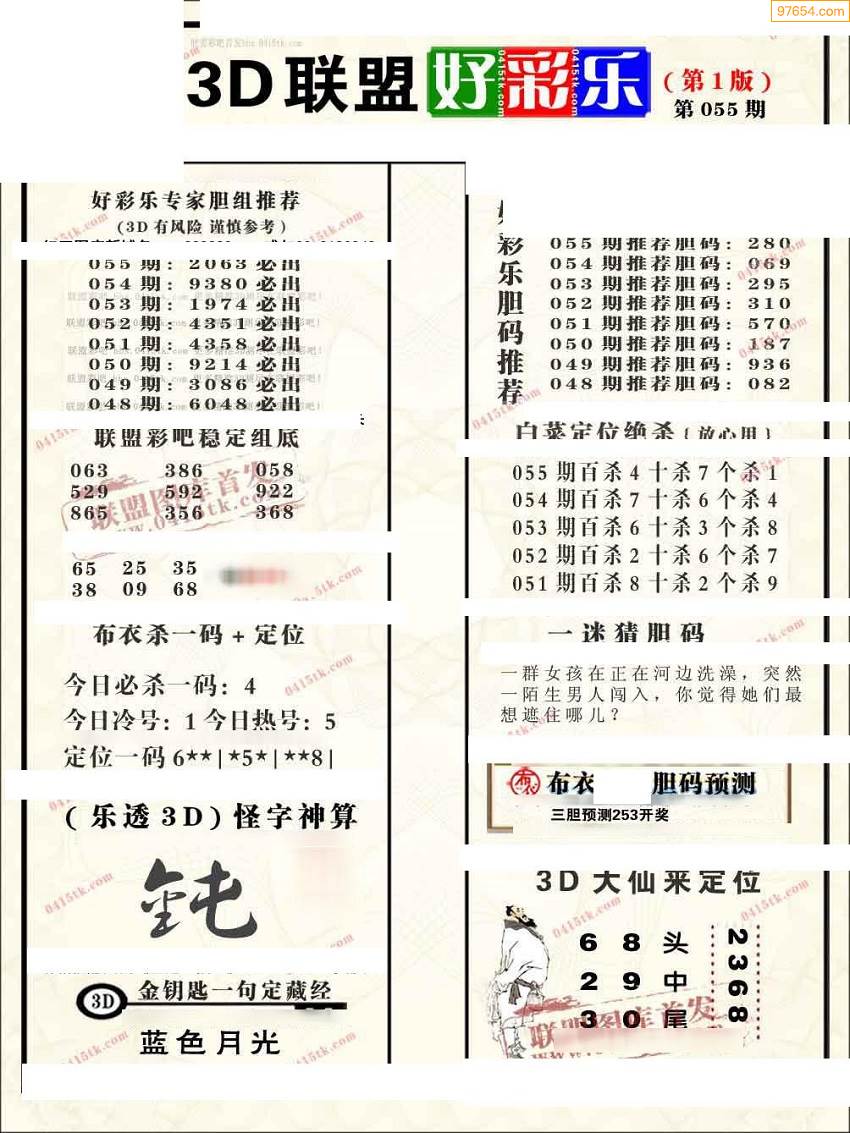 97654.com
3D联盟好彩乐
(第1版)
第055期
好彩乐专家胆组推荐
(3D有风险 谨慎参考)
055期: 2063必出
054期: 9380必出
053期: 1974必出
052期: 4351必出
051期: 4358必出
050期: 9214必出
049期: 3086必出
048期: 6048必出
联盟彩吧稳定组底
063 386 058
529 592 922
865 356 368
65 25 35
38 09 68
布衣杀一码+定位
今日必杀一码: 4
今日冷号: 1 今日热号: 5
定位一码6**|*5*|**8|
(乐透3D)怪字神算
3D 金钥匙一句定藏经
蓝色月光
彩乐胆码推荐
055期推荐胆码: 280
054期推荐胆码: 069
053期推荐胆码: 295
052期推荐胆码: 310
051期推荐胆码: 570
050期推荐胆码: 187
049期推荐胆码: 936
048期推荐胆码: 082
白菜定位绝杀{放心用}
055期百杀4十杀7个杀1
054期百杀7十杀6个杀4
053期百杀6十杀3个杀8
052期百杀2十杀6个杀7
051期百杀8十杀2个杀9
一迷猜胆码
一群女孩在正在河边洗澡，突然
一陌生男人闯入，你觉得她们最
想遮住哪儿？
布衣 胆码预测
三胆预测253开奖
3D大仙来定位
6 8 头
2 9 中
3 0 尾
2368
联盟图库首发
www.0415tk.com
0415tk.com